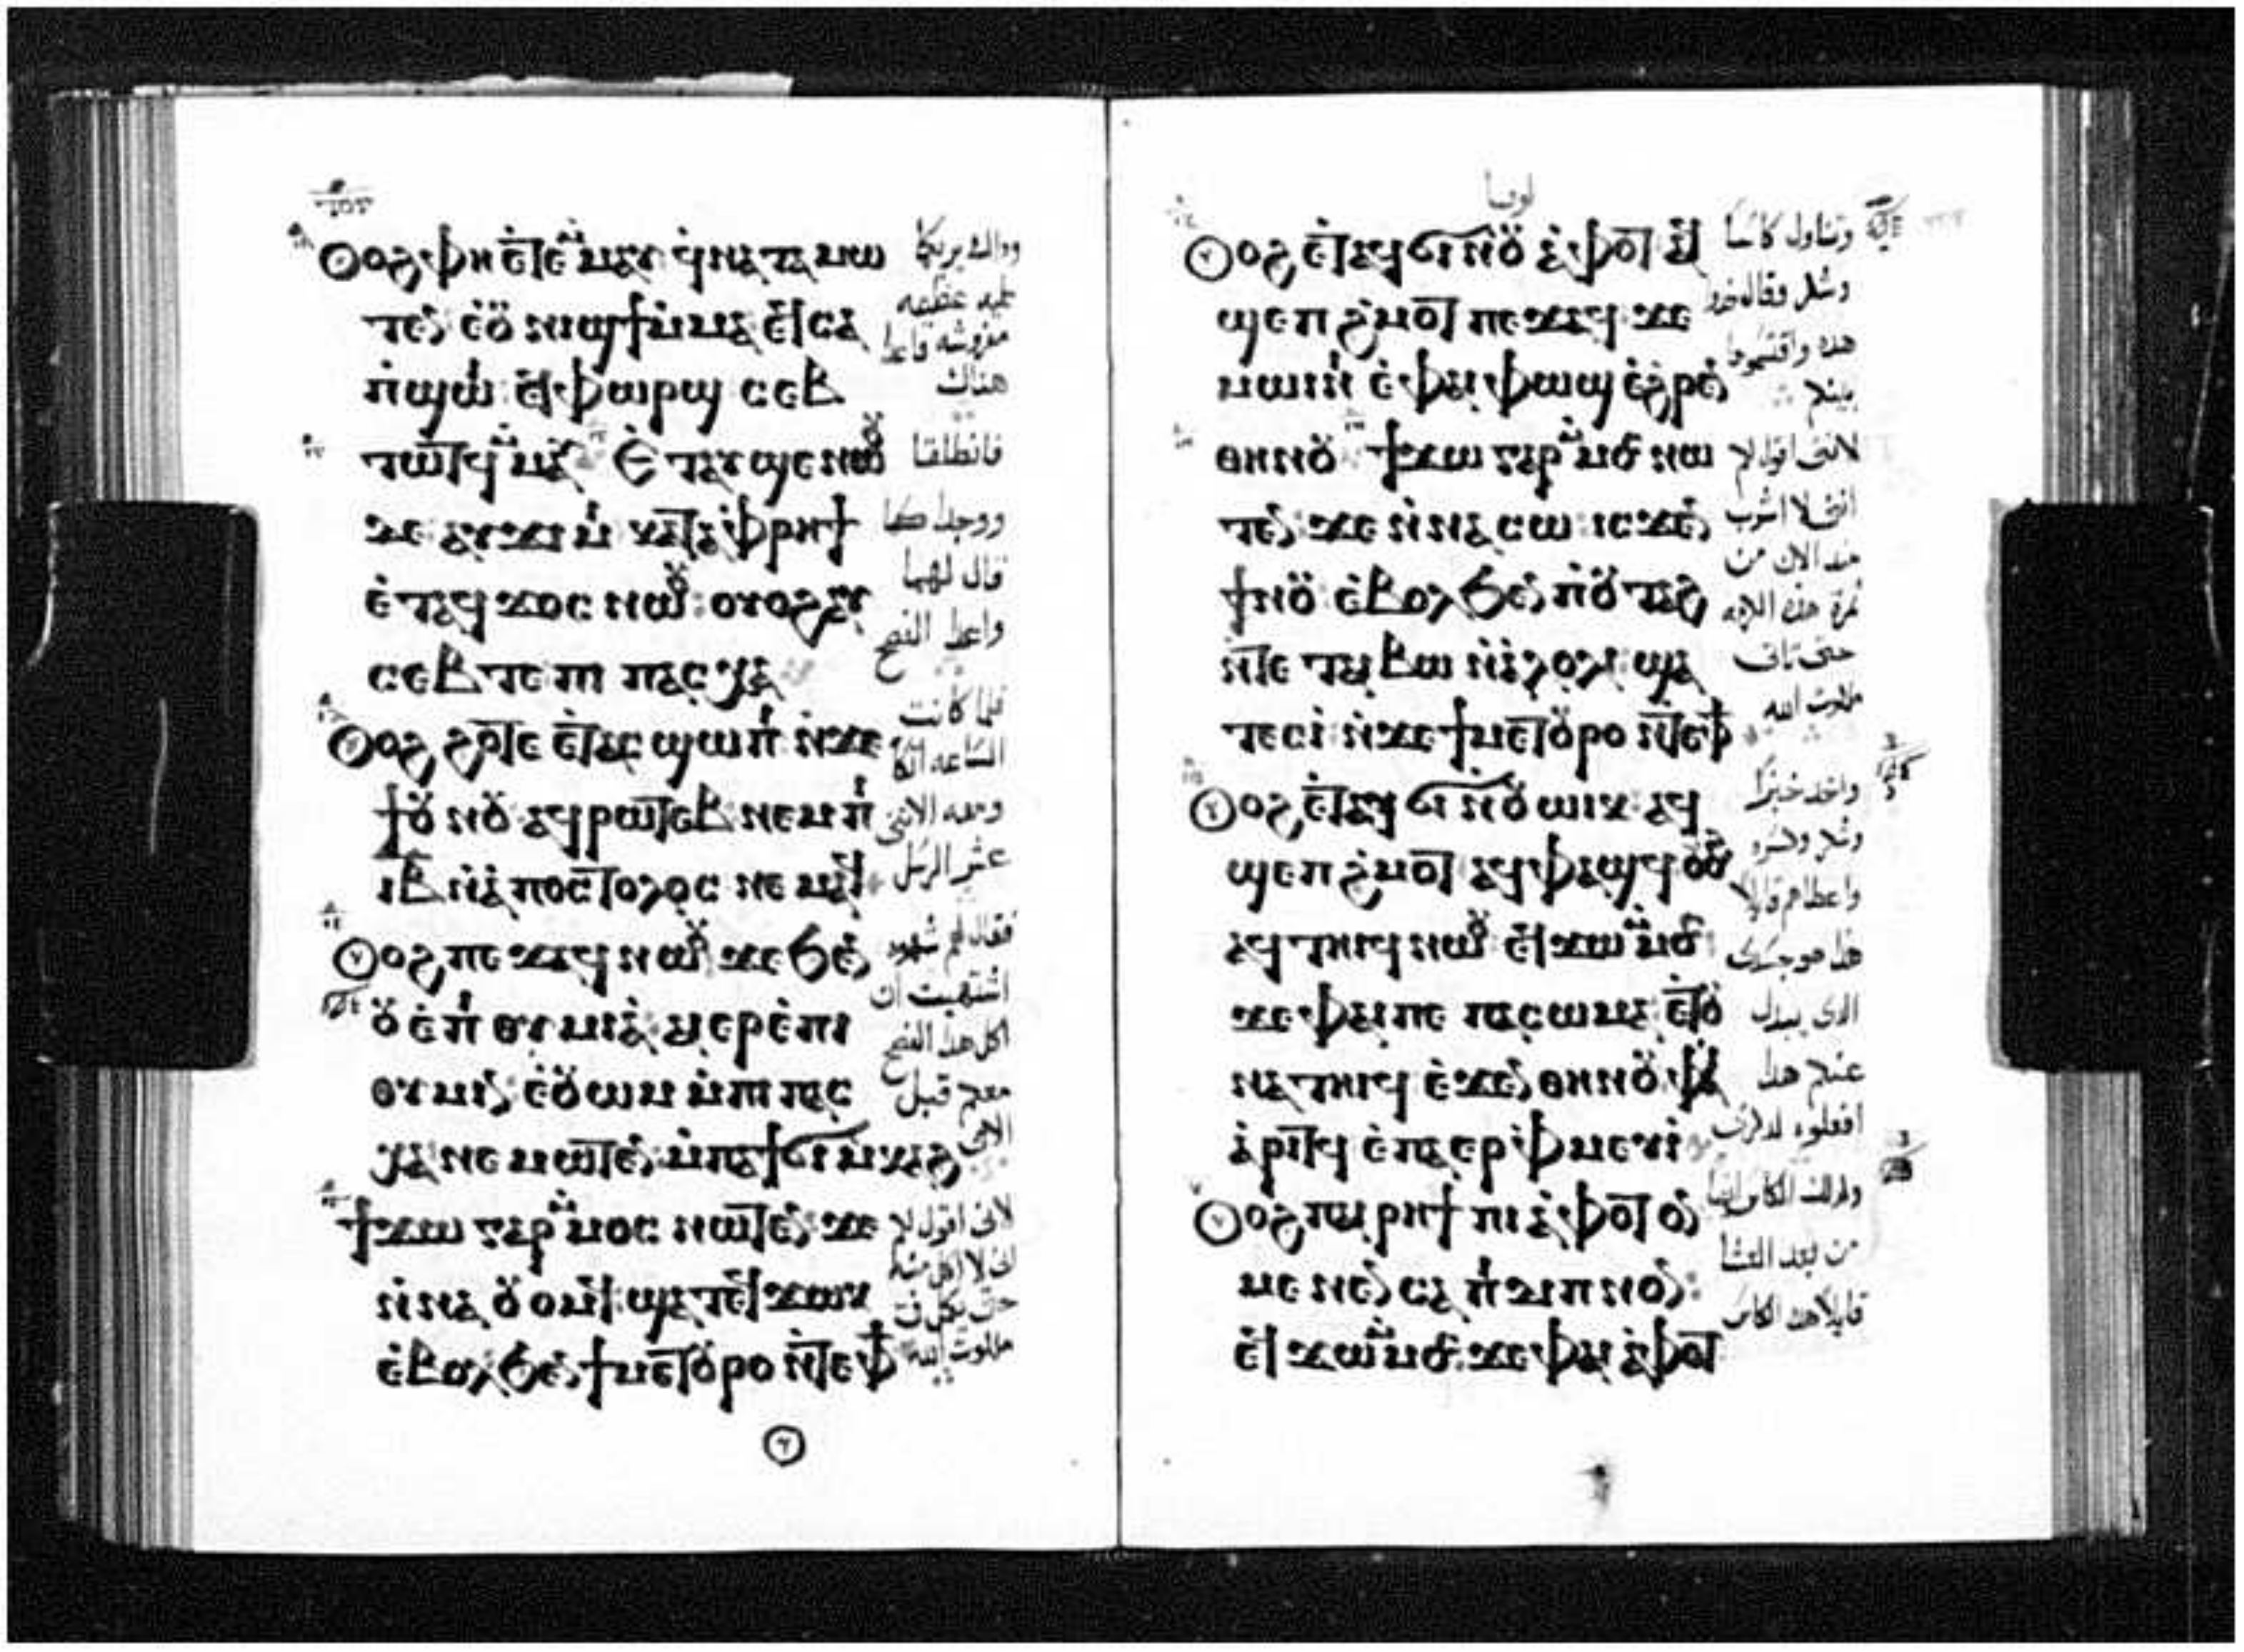 ⲟⲩⲟϩ ⲫⲏ ⲉⲧⲉ ⲙ̀ⲙⲁⲩ ϥ̀ⲛⲁⲧⲁⲙⲱ
ⲧⲉⲛ ⲉ̀ⲟⲩ ⲛⲓϣϯ ⲙ̀ⲙⲁ ⲉⲧⲥⲁ
ⲡ̀ϣⲱⲓ ⲉϥⲫⲱⲣϣ ⲥⲉⲃ
ⲧⲱⲧϥ ⲙ̀ⲙⲁⲩ ⲉ̀ⲧⲁⲩϣⲉ ⲛⲱⲟⲩ
ⲇⲉ ⲁⲩϫⲓⲙⲓ ⲕⲁⲧⲁ ⲫ̀ⲣⲏϯ
ⲉ̀ⲧⲁϥϫⲟⲥ ⲛⲱⲟⲩ ⲟⲩⲟϩ ⲁⲩ
ⲥⲉⲃⲧⲉ ⲡⲓⲡⲁⲥⲭⲁ
ⲟⲩⲟϩ ϩⲟⲧⲉ ⲉ̀ⲧⲁⲥϣⲱⲡⲓ ⲛ̀ϫⲉ
ϯⲟⲩⲛⲟⲩ ⲁϥⲣⲱⲧⲉⲃ ⲛⲉⲙ ⲡⲓ
ⲓⲃ ⲛ̀ⲁ̀ⲡⲟⲥⲧⲟⲗⲟⲥ ⲛⲉⲙⲁϥ
ⲟⲩⲟϩ ⲡⲉϫⲁϥ ⲛⲱⲟⲩ ϫⲉ ϧⲉⲛ
ⲟⲩⲉ̀ⲡⲓⲑⲩⲙⲓⲁ̀ ⲁⲓⲉⲣⲉ̀ⲡⲓ
ⲑⲩⲙⲓⲛ ⲉ̀ⲟⲩⲱⲙ ⲙ̀ⲡⲓⲡⲁⲥ
ⲭⲁ ⲛⲉⲙⲱⲧⲉⲛ ⲙ̀ⲡⲁϯϭⲓ ⲙ̀ⲕⲁϩ
ϯϫⲱ ⲅⲁⲣ ⲙ̀ⲙⲟⲥ ⲛⲱⲧⲉⲛ ϫⲉ
ⲛ̀ⲛⲁⲟⲩⲟⲙϥ ϣⲁⲧⲉϥϫⲱⲕ
ⲉ̀ⲃⲟⲗ ϧⲉⲛ ϯⲙⲉⲧⲟⲩⲣⲟ ⲛ̀ⲧⲉ ⲫϯ
وداك يريكما
عليه عظيمه
مفروشه فاعدا
هناك
فانطلقا
ووجدا كما
قال لهما
واعدا الفصح
فلما كانت
الساعه اتكا
ومعه الاثنى
عشر الرسل
فقال لهم شهوه
اشتهيت ان
اكل هذا الفصح
معكم قبل
الامى
لانى اقول لكم
انى لا اكل منه
حتى يكمل فى
ملكوت الله
لوقا
ⲟⲩⲟϩ ⲉ̀ⲧⲁϥϭⲓ ⲛ̀ⲟⲩⲁ̀ⲫⲟⲧ ⲁϥ
ϣⲉⲡ ϩ̀ⲙⲟⲧ ⲡⲉϫⲁϥ ϫⲉ
ⲙⲱⲓⲛⲓ ⲉ̀ⲫⲁⲓ ⲫⲁϣϥ ⲉ̀ϩⲣⲉⲛ
ⲑⲏⲛⲟⲩ ϯϫⲱ ⲅⲁⲣ ⲙ̀ⲙⲟⲥ ⲛⲱ
ⲧⲉⲛ ϫⲉ ⲛ̀ⲛⲁⲥⲱ ⲓⲥϫⲉⲛ
ϯⲛⲟⲩ ⲉ̀ⲃⲟⲗ ϧⲉⲛ ⲡ̀ⲟⲩⲧⲁϩ
ⲛ̀ⲧⲉ ⲧⲁⲓⲃⲱ ⲛ̀ⲁ̀ⲗⲟⲗⲓ ϣⲁ
ⲧⲉⲥⲓ̀ ⲛ̀ϫⲉ ϯⲙⲉⲧⲟⲩⲣⲟ ⲛ̀ⲧⲉ ⲫϯ
ⲟⲩⲟϩ ⲉ̀ⲧⲁϥϭⲓ ⲛ̀ⲟⲩⲱⲓⲕ ⲁϥ
ϣⲉⲡ ϩ̀ⲙⲟⲧ ⲁϥⲫⲁϣϥ ⲟⲩⲟϩ
ⲁϥⲧⲏⲓϥ ⲛⲱⲟⲩ ⲉϥϫⲱ ⲙ̀ⲙⲟⲥ
ϫⲉ ⲫⲁⲓ ⲡⲉ ⲡⲁⲥⲱⲙⲁ ⲉ̀ⲧⲟⲩ
ⲛⲁⲧⲏⲓϥ ⲉ̀ϫⲉⲛ ⲑⲏⲛⲟⲩ ⲫⲁⲓ
ⲁ̀ⲣⲓⲧϥ ⲉ̀ⲡⲁⲉⲣⲫ̀ⲙⲉⲩⲓ̀
ⲟⲩⲟϩ ⲡⲁⲓⲣⲏϯ ⲡⲓⲁ̀ⲫⲟⲧ ⲟⲛ
ⲙⲉⲛⲉⲛⲥⲁ ⲡⲓⲇⲓⲡⲛⲟⲛ
ⲉϥϫⲱ ⲙ̀ⲙⲟⲥ ϫⲉ ⲫⲁⲓ ⲁ̀ⲫⲟⲧ
وتناول كاسا
وشكر وقال خدوا
هده واقتسموها
بينكم
لاننى اقول لكم
اننى لا اشرب
مند الان من
ثمرة هذه الكرمه
حتى تاتى
ملكوت الله
واخد خبزا
وشكر وكسره
واعطاهم قايلا
هذا هو جسدى
الدى يبدل
عنكم هدا
افعلوه لدكرى
وكدلك الكاس ايضا
من بعد العشا
قايلا هده الكاس